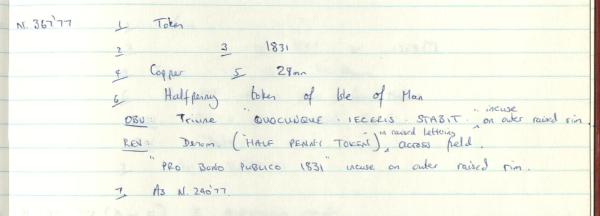 N. 367'77 1 Token
2 3 1831
4 Copper 5 28mm
6 Halfpenny token of Isle of Man
OBV: Triune "QUOCUNQUE . IECERIS . STABIT" incuse on outer raised rim.
REV: Denom. ("HALF PENNY TOKEN") in raised lettering across field.
"PRO BONO PUBLICO 1831" incuse on outer raised rim.
7. As N. 240'77.